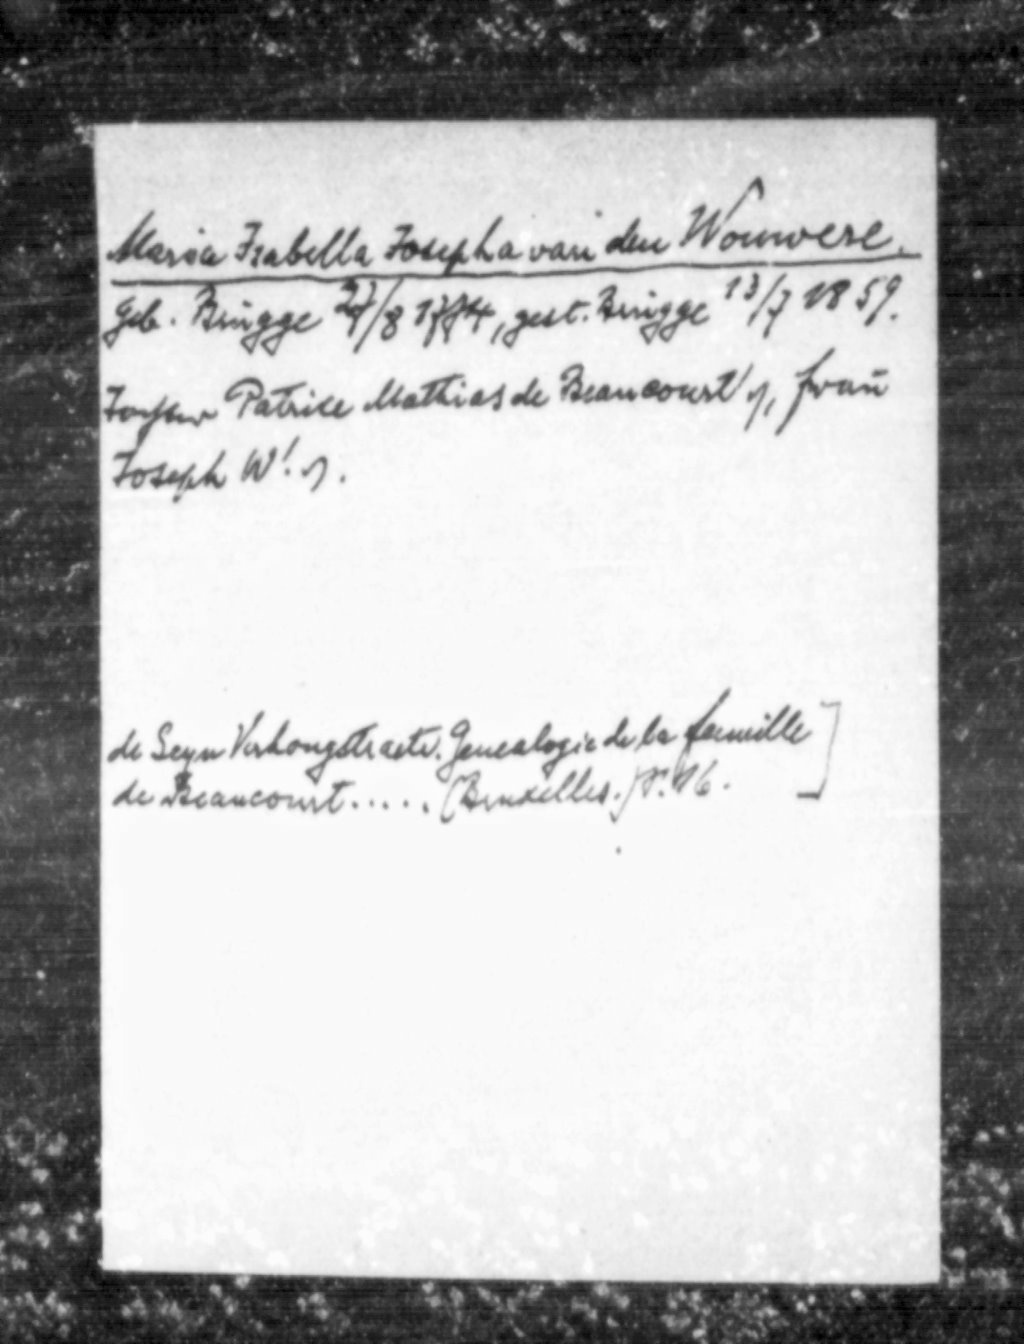 Maria Isabella Josepha van den Wouwere.
geb. Brügge /8 17, gest. Brügge 13/7 1859.
Patrice Mathias de Beaucourt frau
Joseph W!
de Seyn Verhougstraete. Genealogie de la famille
de Beaucourt..... (Bruxelles.) p. 16.